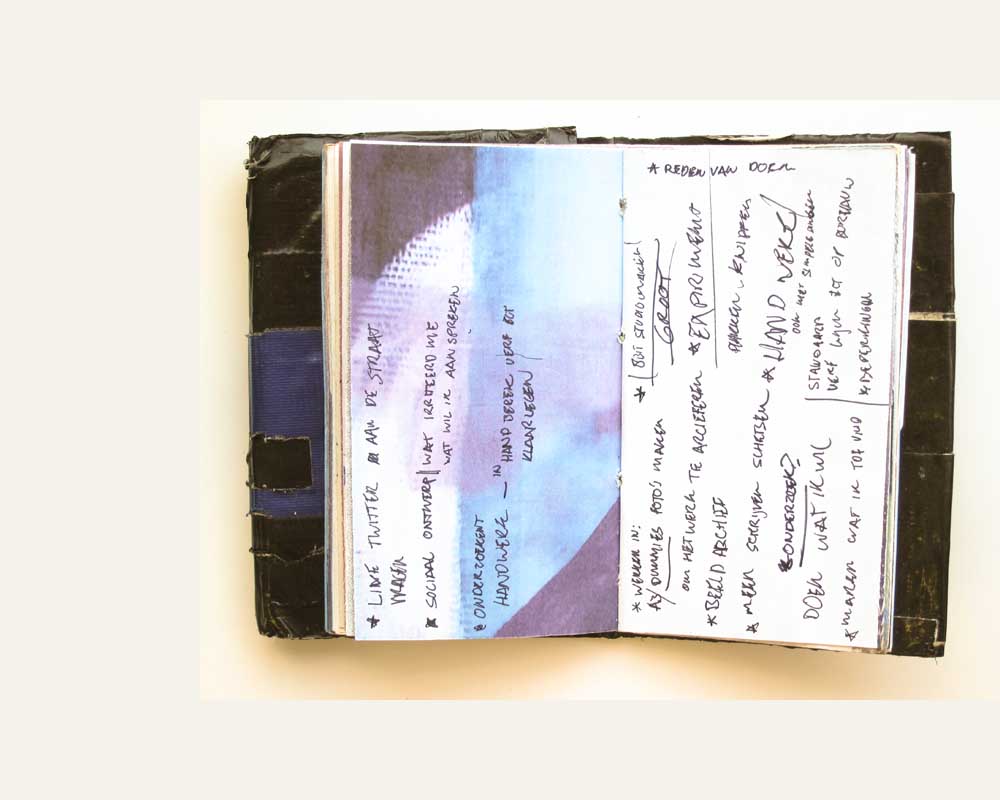 * LINK TWITTER AAN DE STRAAT
VRAGEN
* SOCIAAL ONTWERP || WAT IRRITEERD ME
WAT WIL IK AANSPREKEN
* ONDERZOEKENT
HANDWERK — IN HAND BEREIK VERF EGT
KLAARLEGEN
* REDEN VAN DOEN
* WERKEN IN:
A3 DUMMIES FOTO'S MAKEN
OM HET WERK TE ARCIEFEREN
* BEELD ARCHIEF
* MEER SCHRIJVEN SCHETSEN
ONDERZOEK?
DOEN WAT IK WIL
* MAKEN WAT IK TOF VIND
* BUIT STUDIO
GROOT
* EXPRIMENT
PLAKKEN, KNIPPEN
* HAND WERK
OOK MET
STANDAART
VERF OP BUREAUW
* BEPERKINGEN